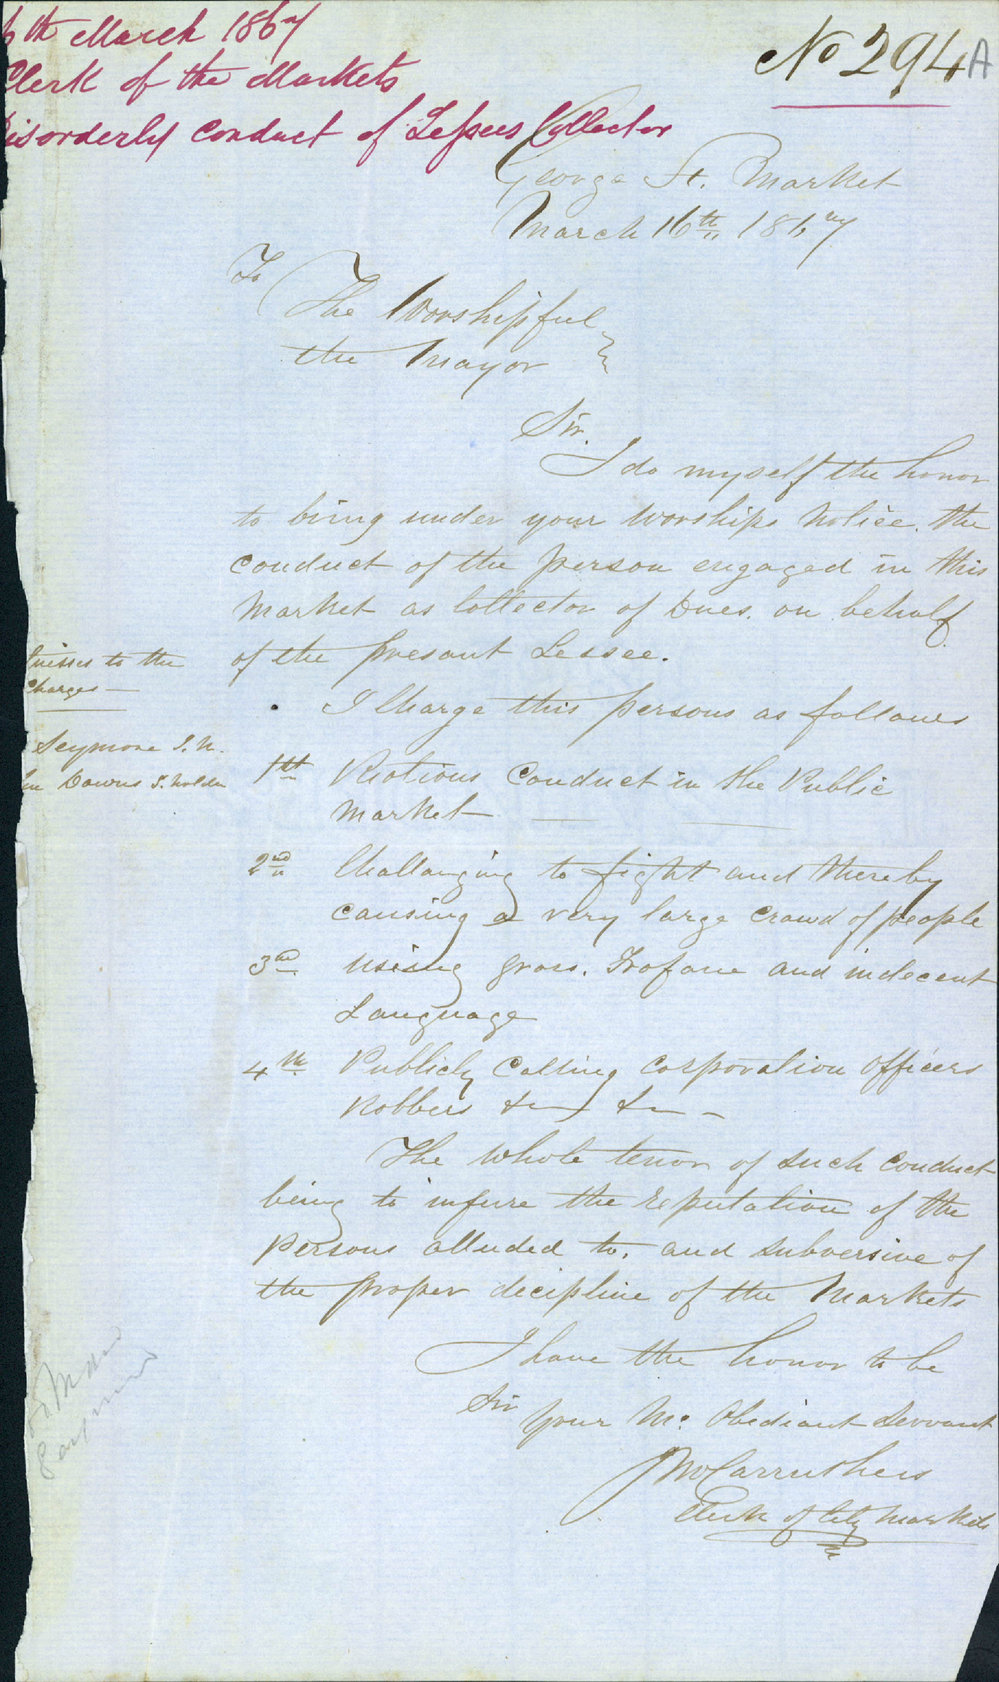 6th March 1867
Clerk of the Markets
Disorderly conduct of Lessees Collector
No 294A
George St. Market
March 16th 1867
To
The Worshipful
the Mayor
Sir.
I do myself the honor
to bring under your worships notice. the
conduct of the person engaged in this
Market as Collector of Dues. on behalf
of the presant Lessee.
I Charge this persons as followes
1st Riotious Conduct in the Public
Market
2nd Challanging to fight and thereby
causing a very large crowd of people
3rd using gross. Profane and indecent
Language
4th Publicly Calling Corporation Officers
Robbers &c &c
The whole tenor of such conduct
being to injure the reputation of the
Persons alluded to. and subversive of
the proper decipline of the Markets
I have the honor to be
Sir
your Mo. Obediant Servant
Jno Carruthers
Clerk of City Markets
tnesses to the
Charges
Seymore I. N.
Downs S. holder